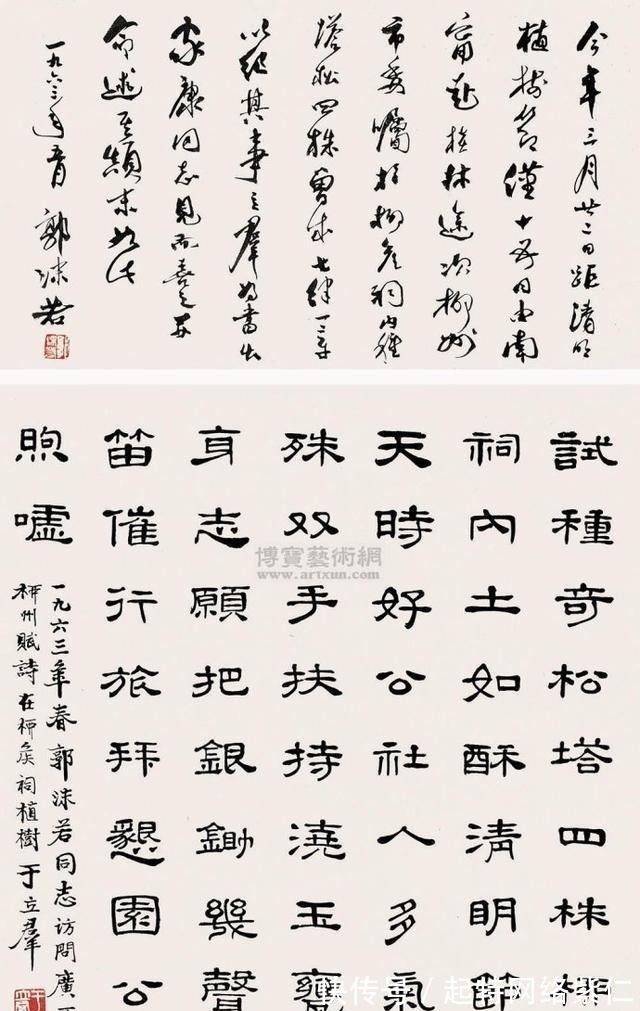 今年三月廿二日距清明
植樹節僅十五日由南
甯赴桂林途次柳州
市委囑於柳侯祠内種
塔松四株曾成七绝一章
以紀其事立羣为書出
家康同志見而喜之
命述其顛末如此
一九六三年
郭沫若
試種奇松塔四株柳
祠內土如酥清明節
天時好公社人多氣
殊双手扶持澆玉甕
身志願把銀鋤幾聲
笛催行旅拜懇園公
煦噓
一九六三年春郭沫若同志访問廣西
柳州賦詩在柳侯祠植樹于立羣
博寶藝術網
www.artxun.com
快传号/起特网络紫仁